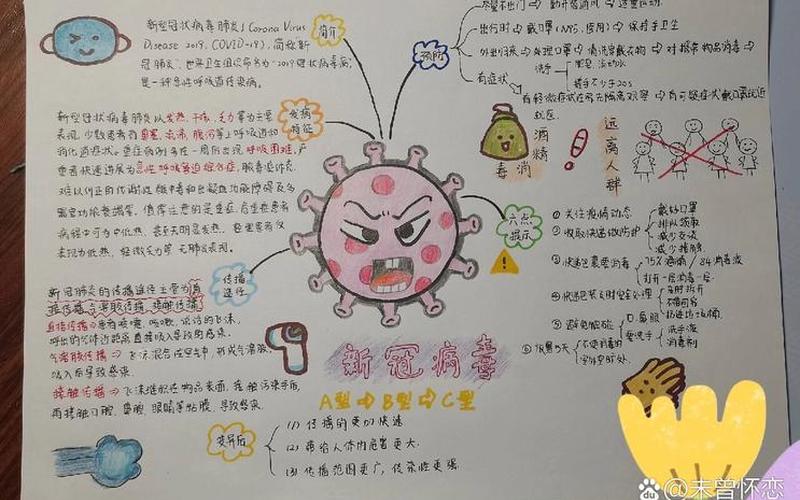 新型冠状病毒肺炎(Corona Virus
Disease 2019, COVID-19), 简称"新
冠肺炎", 世界卫生组织命名为"2019冠状病毒病",
是一种急性呼吸道传染病。
简介
新型冠状病毒肺炎以发热、干咳、乏力等为主要
表现, 少数患者有鼻塞、流涕、腹泻等上呼吸道和
消化道症状。重症病例多在一周后出现呼吸困难, 严
重者快速进展为急性呼吸窘迫综合征、脓毒症休克、
难以纠正的代谢性酸中毒和出凝血功能障碍及多
器官功能衰竭等。值得注意的是重症、危重症患者
病程中可为中低热, 甚至无明显发热。轻型患者仅
表现为低热、轻微乏力等, 无肺炎表现。
发病
特征
新冠肺炎的传播途径主要为直
接传播、气溶胶传播、接触传播
直接传播⇒患者喷嚏、咳嗽、说话的飞沫,
呼出的气体近距离直接吸入导致的感染。
气溶胶传播⇒飞沫混合在空气中, 形成气溶胶,
吸入后导致感染。
接触传播⇒飞沫沉积在物品表面, 接触污染手后,
再接触口腔、鼻腔、眼睛等粘膜, 导致感染。
传播
途径
预防
尽量不出门→勤开窗通风→适量运动
出行时→戴口罩(N95、医用)→保持手卫生
外出归来→处理口罩→清洗穿戴衣物→对携带物品消毒→
洗手
肥皂、流动水
搓手不少于20s
有症状
酒精
消毒
远离人群
六点
提示
① 关注疫情动态
② 收取快递做防护
戴好口罩
排队领取
减少交谈
减少接触
③ 快递包裹要消毒
75%酒精
84消毒液
打开一层消毒一层
④ 快递包装及时安全处理
及时拆开
⑤ 避免触碰
口、鼻、眼
要洗手
洗手液
消毒剂
新冠病毒
A型⇒B型⇒C型
变异后
(1) 传播的更加快速
(2) 带给人体的危害更大.
(3) 传播范围更广, 传染性更强.
Bai du @未曾怀恋